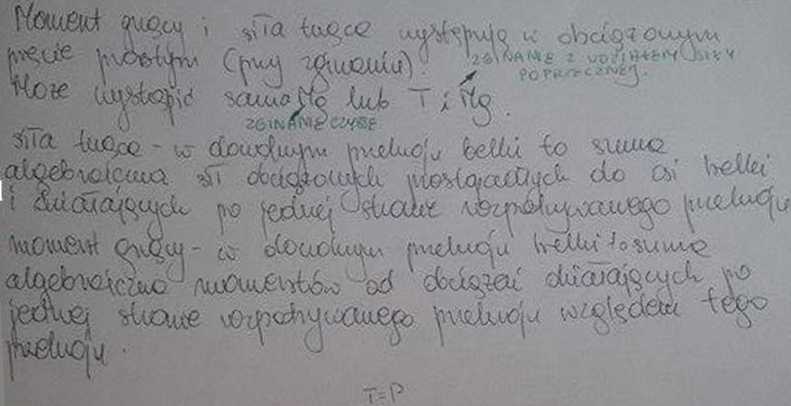 Moment gnący i siła tnąca występują w obciążonym
pręcie prostym (przy zginaniu).
ZGINANIE Z UDZIAŁEM SIŁY
POPRZECZNEJ.
Może wystąpić samo Mg lub T i Mg.
ZGINANIE CZYSTE
siła tnąca - w dowolnym przekroju belki to suma
algebraiczna sił obciążowych prostopadłych do osi belki
i działających po jednej stronie rozpatrywanego przekroju
moment gnący - w dowolnym przekroju belki to suma
algebraiczna momentów od obciążeń działających po
jednej stronie rozpatrywanego przekroju względem tego
przekroju.
T=P